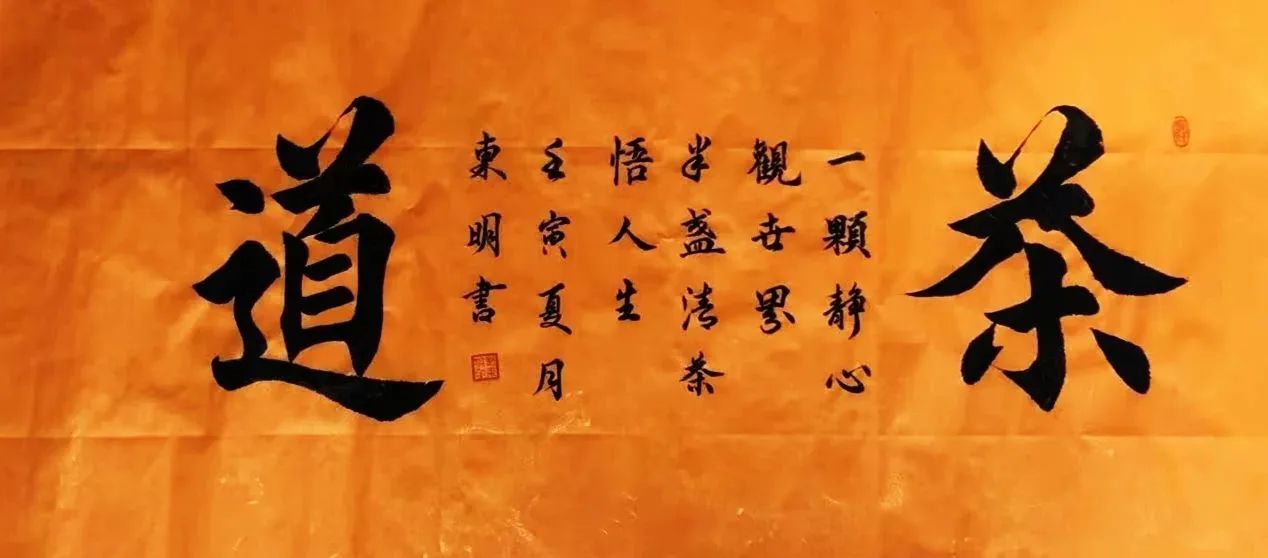 茶
一顆静心
觀世界
半盏清茶
悟人生
壬寅夏月
東明書
道